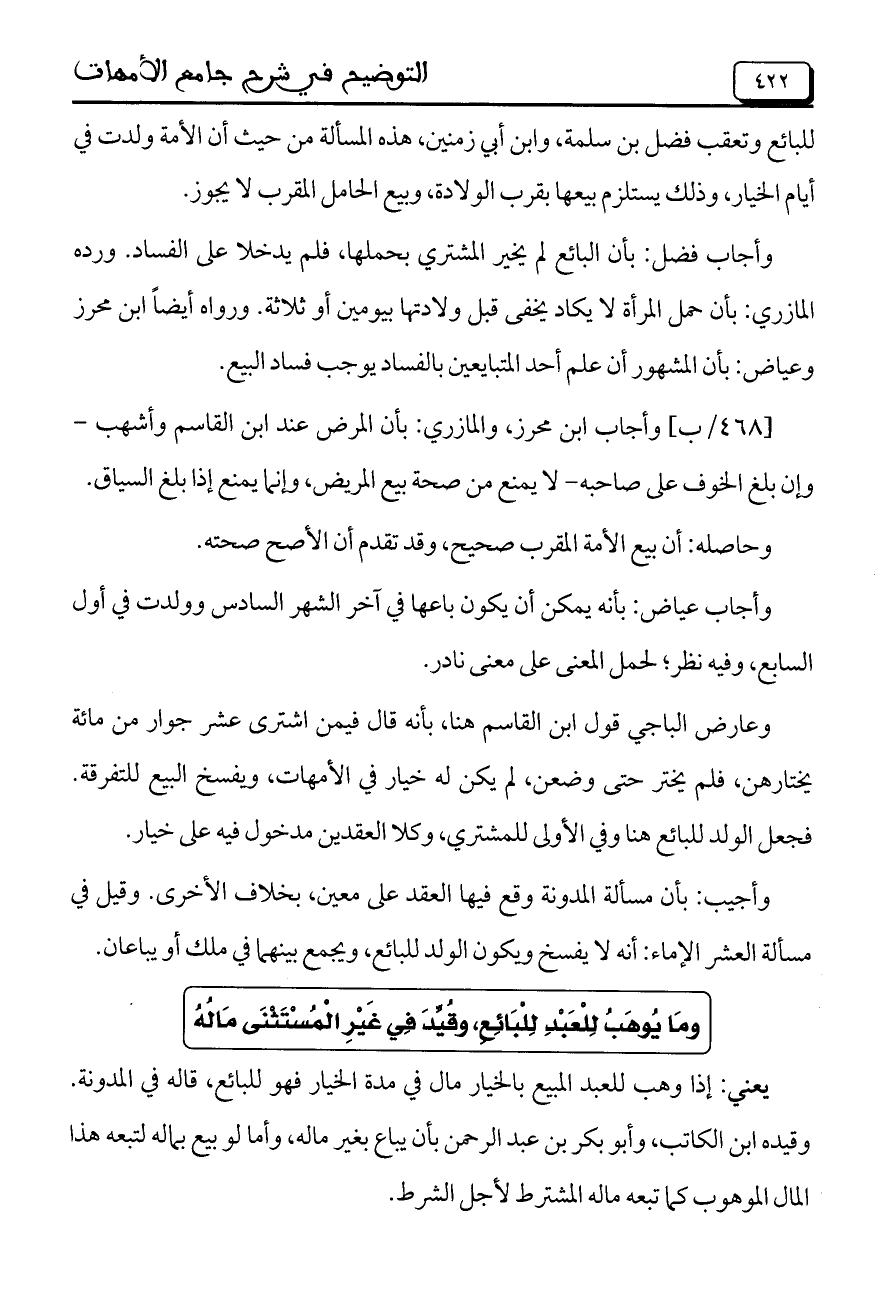 ٤٢٢ التوضيح في شرح جامع الأمهات
للبائع وتعقب فضل بن سلمة، وابن أبي زمنين، هذه المسألة من حيث أن الأمة ولدت في
أيام الخيار، وذلك يستلزم بيعها بقرب الولادة، وبيع الحامل المقرب لا يجوز.
وأجاب فضل: بأن البائع لم يخير المشتري بحملها، فلم يدخلا على الفساد. ورده
المازري: بأن حمل المرأة لا يكاد يخفى قبل ولادتها بيومين أو ثلاثة. ورواه أيضاً ابن محرز
وعياض: بأن المشهور أن علم أحد المتبايعين بالفساد يوجب فساد البيع.
[٤٦٨/ ب] وأجاب ابن محرز، والمازري: بأن المرض عند ابن القاسم وأشهب –
وإن بلغ الخوف على صاحبه– لا يمنع من صحة بيع المريض، وإنما يمنع إذا بلغ السياق.
وحاصله: أن بيع الأمة المقرب صحيح، وقد تقدم أن الأصح صحته.
وأجاب عياض: بأنه يمكن أن يكون باعها في آخر الشهر السادس وولدت في أول
السابع، وفيه نظر؛ لحمل المعنى على معنى نادر.
وعارض الباجي قول ابن القاسم هنا، بأنه قال فيمن اشترى عشر جوار من مائة
يختارهن، فلم يختر حتى وضعن، لم يكن له خيار في الأمهات، ويفسخ البيع للتفرقة.
فجعل الولد للبائع هنا وفي الأولى للمشتري، وكلا العقدين مدخول فيه على خيار.
وأجيب: بأن مسألة المدونة وقع فيها العقد على معين، بخلاف الأخرى. وقيل في
مسألة العشر الإماء: أنه لا يفسخ ويكون الولد للبائع، ويجمع بينهما في ملك أو يباعان.
ومَا يُوهَبُ لِلْعَبْدِ لِلْبَائِعِ، وقُيِّدَ فِي غَيْرِ الْمُسْتَثْنَى مَالُهُ
يعني: إذا وهب للعبد المبيع بالخيار مال في مدة الخيار فهو للبائع، قاله في المدونة.
وقيده ابن الكاتب، وأبو بكر بن عبد الرحمن بأن يباع بغير ماله، وأما لو بيع بماله لتبعه هذا
المال الموهوب كما تبعه ماله المشترط لأجل الشرط.